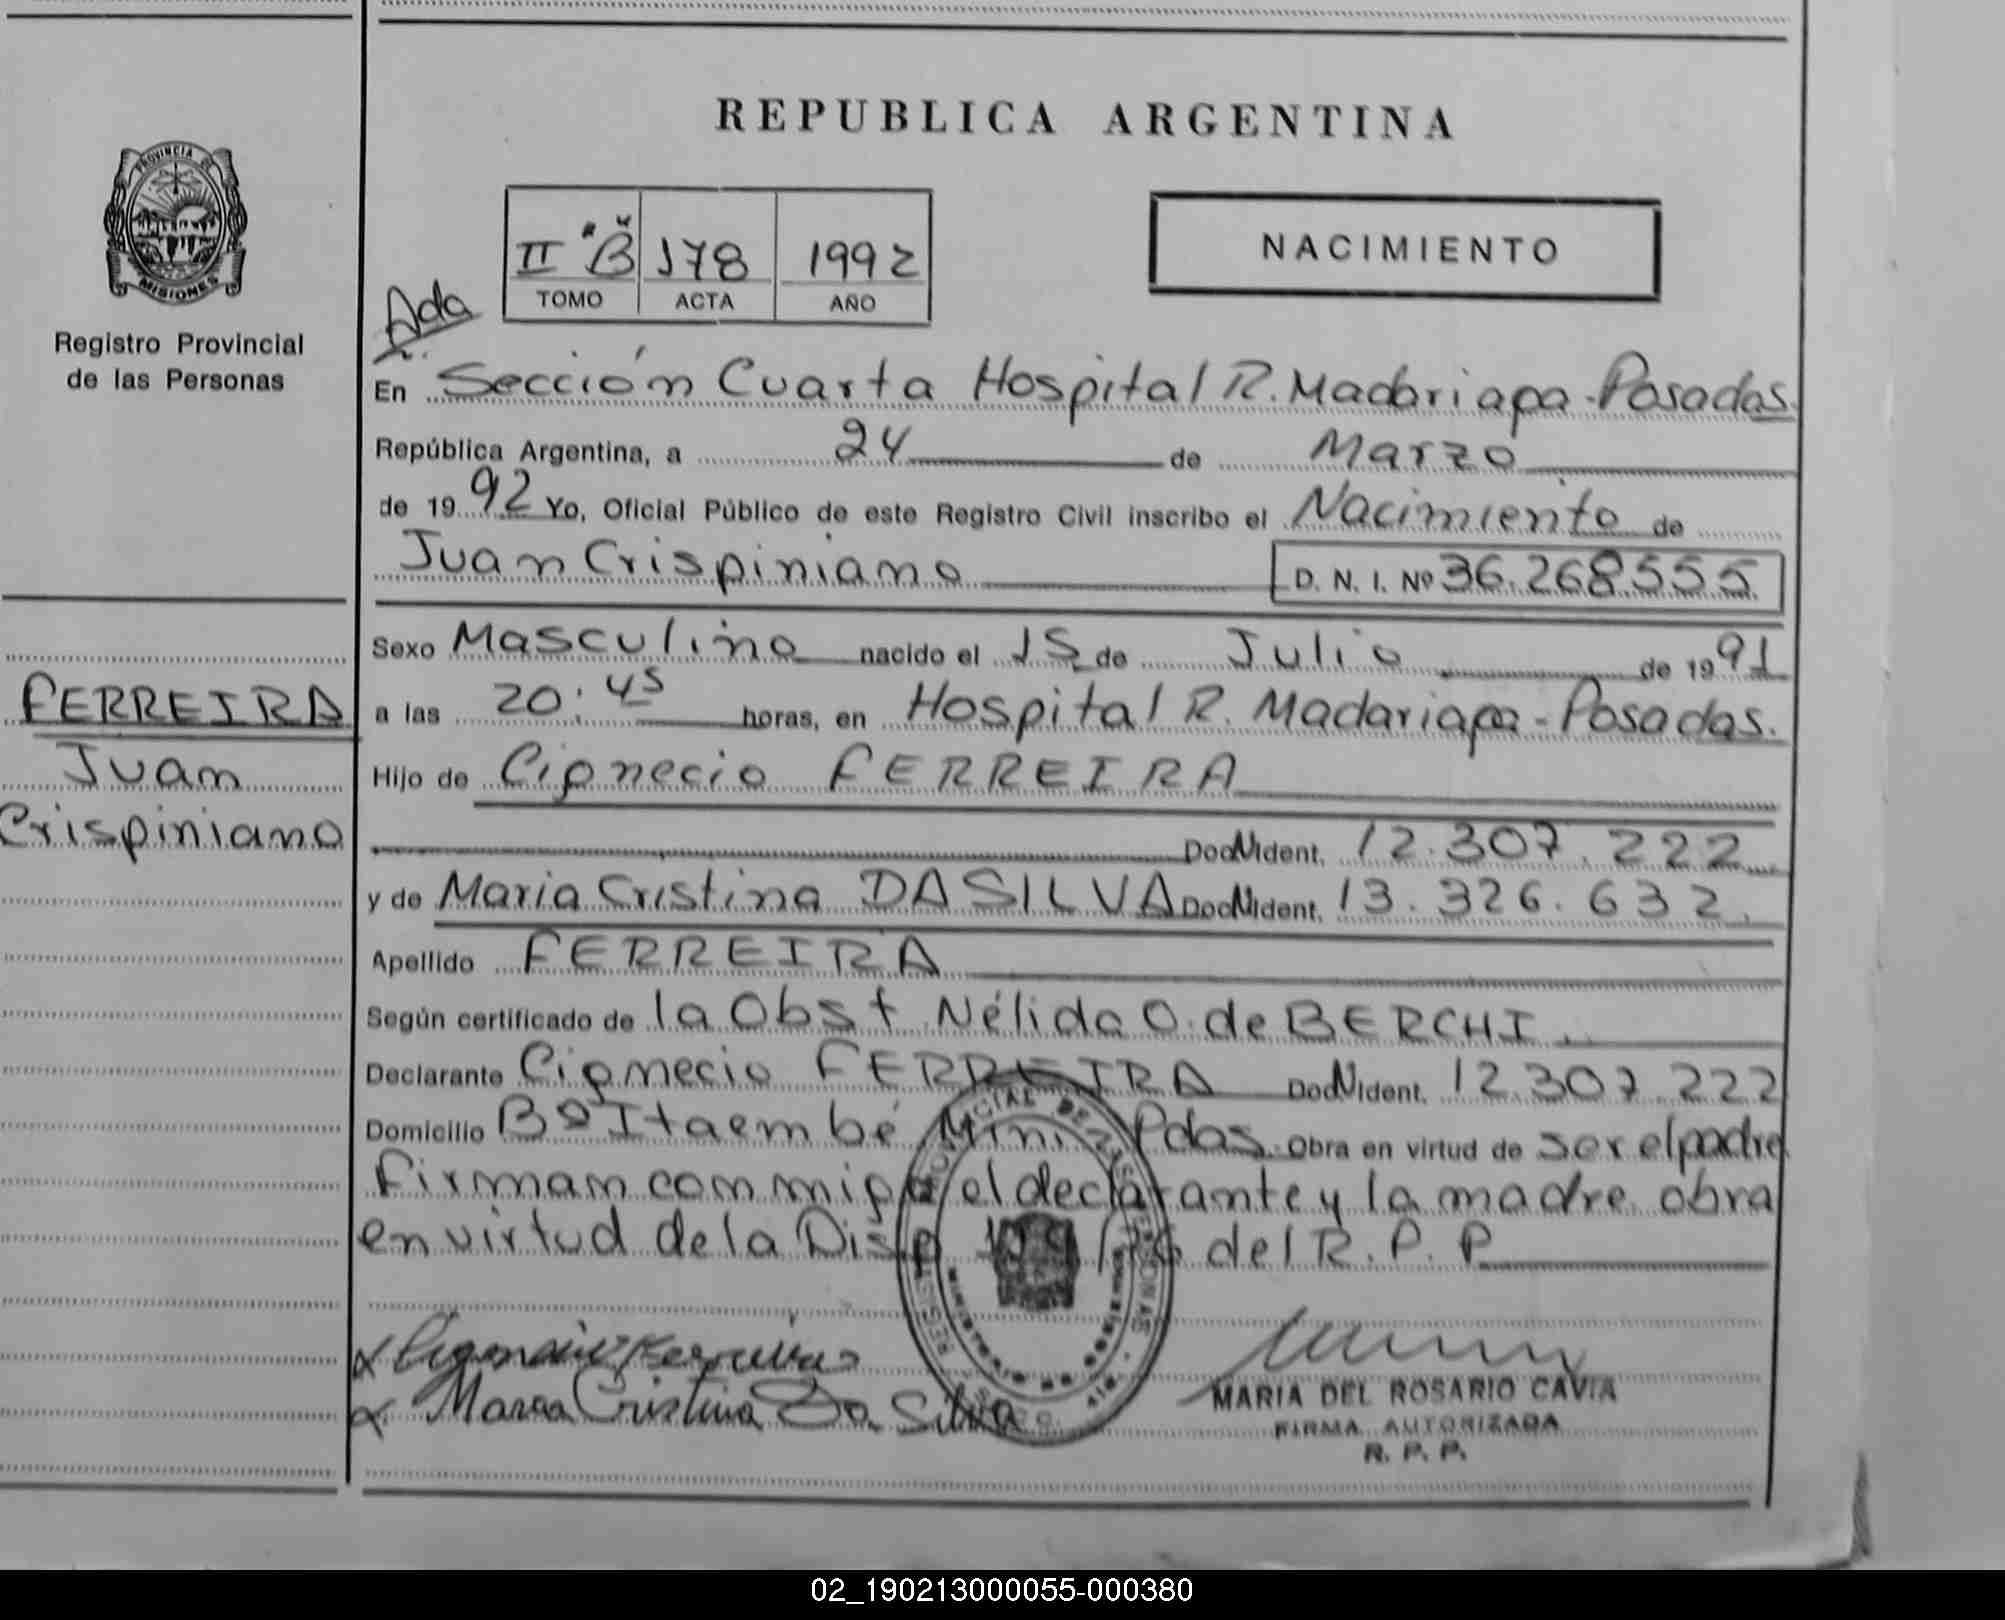 REPUBLICA ARGENTINA
PROVINCIA DE
MISIONES
Registro Provincial
de las Personas
II "B" 178 1992
TOMO ACTA AÑO
NACIMIENTO
Ada
En Sección Cuarta Hospital R. Madariaga - Posadas.
República Argentina, a 24 de Marzo
de 1992 Yo, Oficial Público de este Registro Civil inscribo el Nacimiento de
Juan Crispiniano D. N. I. Nº 36.268555
Sexo Masculino nacido el 15 de Julio de 1991
FERREIRA
Juan
Crispiniano
a las 20:45 horas, en Hospital R. Madariaga - Posadas.
Hijo de Cignecio FERREIRA
Doc. N. Ident. 12.307.222
y de Maria Cristina DA SILVA Doc. N. Ident. 13.326.632.
Apellido FERREIRA
Según certificado de la Obst Nélida O. de BERCHI.
Declarante Cignecio FERREIRA Doc. N. Ident. 12.307.222
Domicilio Bº Itaembé Mini Pdas. Obra en virtud de ser el padre
Firman conmigo el declarante y la madre. obra
en virtud de la Disp del R. P. P
Cignecio Ferreira
Maria Cristina Da Silva
MARIA DEL ROSARIO CAVIA
FIRMA AUTORIZADA
R. P. P.
02_190213000055-000380